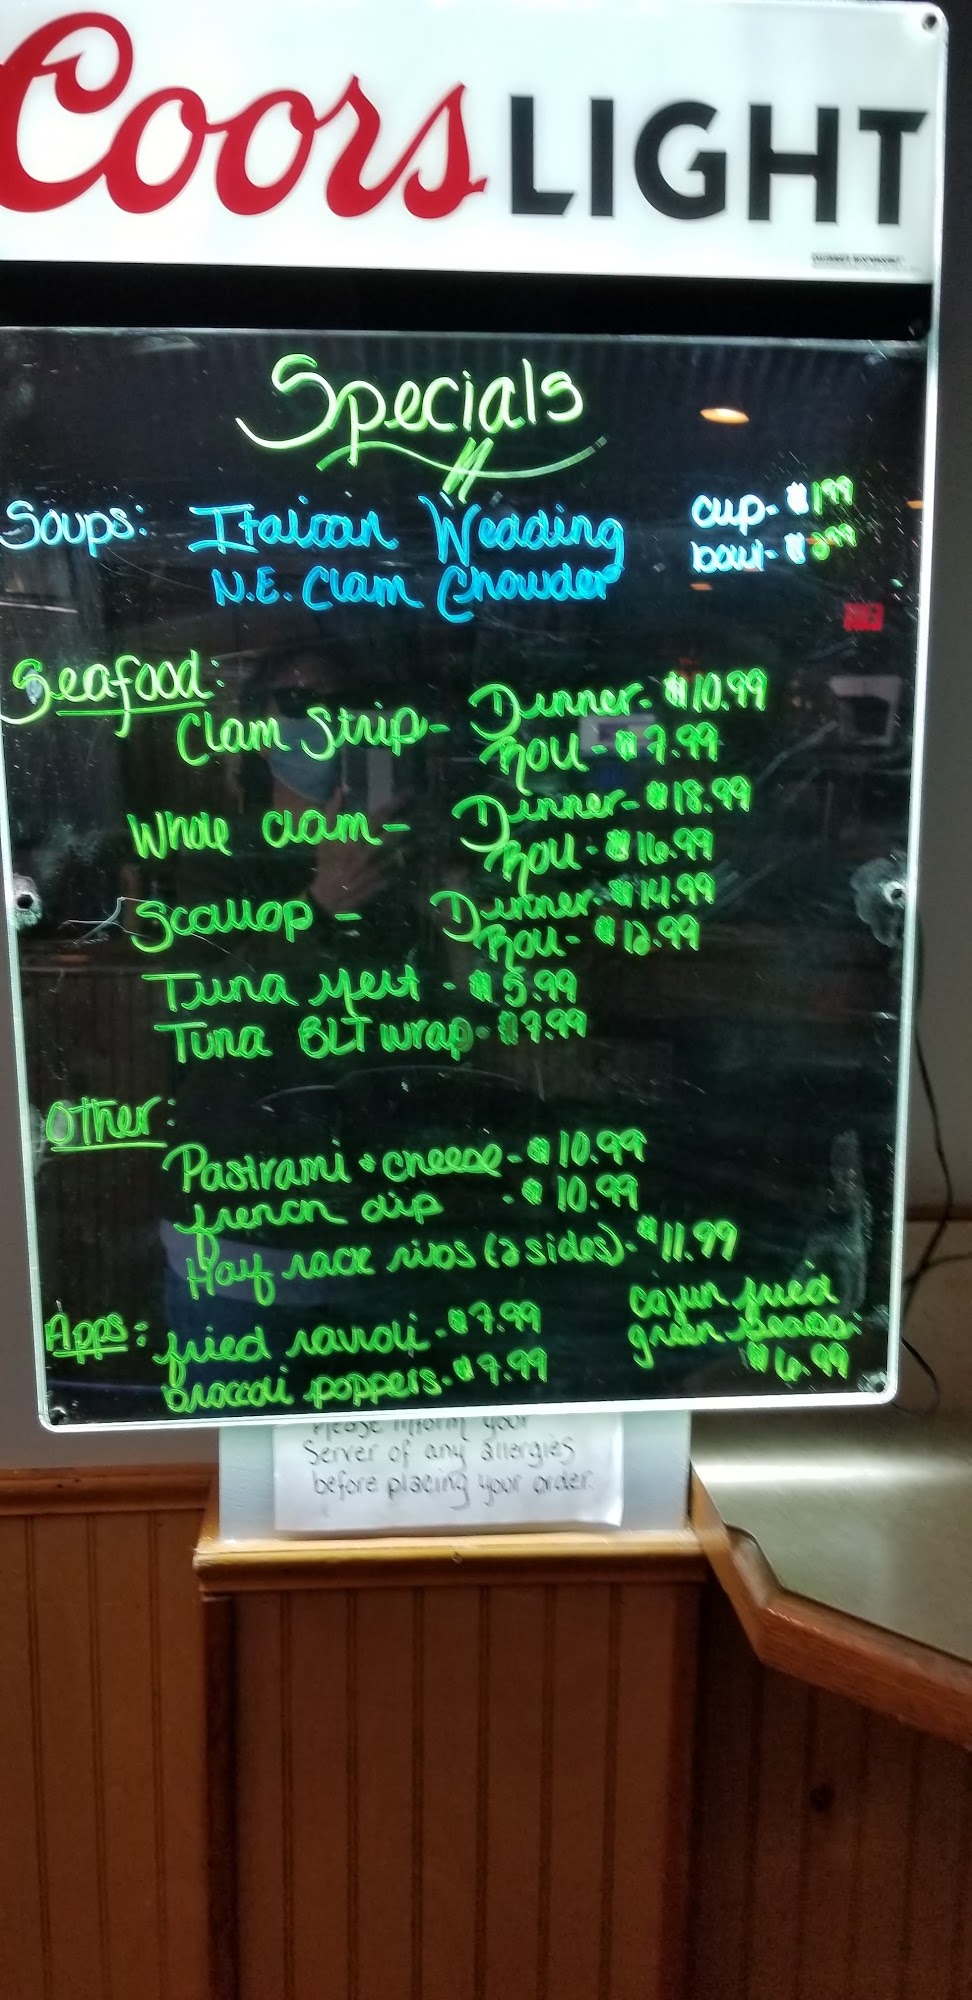 Coors LIGHT
Specials
Soups: Italian Wedding cup- $1.99
N.E. Clam Chowder bowl- $2.99
Seafood:
Clam Strip- Dinner- $10.99
Roll- $7.99
Whole clam- Dinner- $18.99
Roll- $16.99
Scallop - Dinner- $14.99
Roll- $12.99
Tuna Melt - $5.99
Tuna BLT wrap- $7.99
Other:
Pastrami & cheese- $10.99
french dip - $10.99
Half rack ribs (2 sides)- $11.99
Apps: fried ravioli - $7.99
broccoli poppers- $7.99
cajun fried
green beans
$6.99
Please inform your
Server of any allergies
before placing your order.